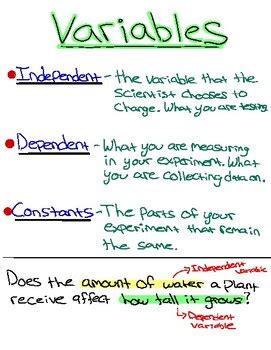 Variables
Independent - the variable that the
Scientist chooses to
Change. What you are testing.
Dependent - What you are measuring
in your experiment. What
you are collecting data on.
Constants - The parts of your
experiment that remain
the same.
Independent variable
Does the amount of water a plant
receive affect how tall it grows?
Dependent
variable